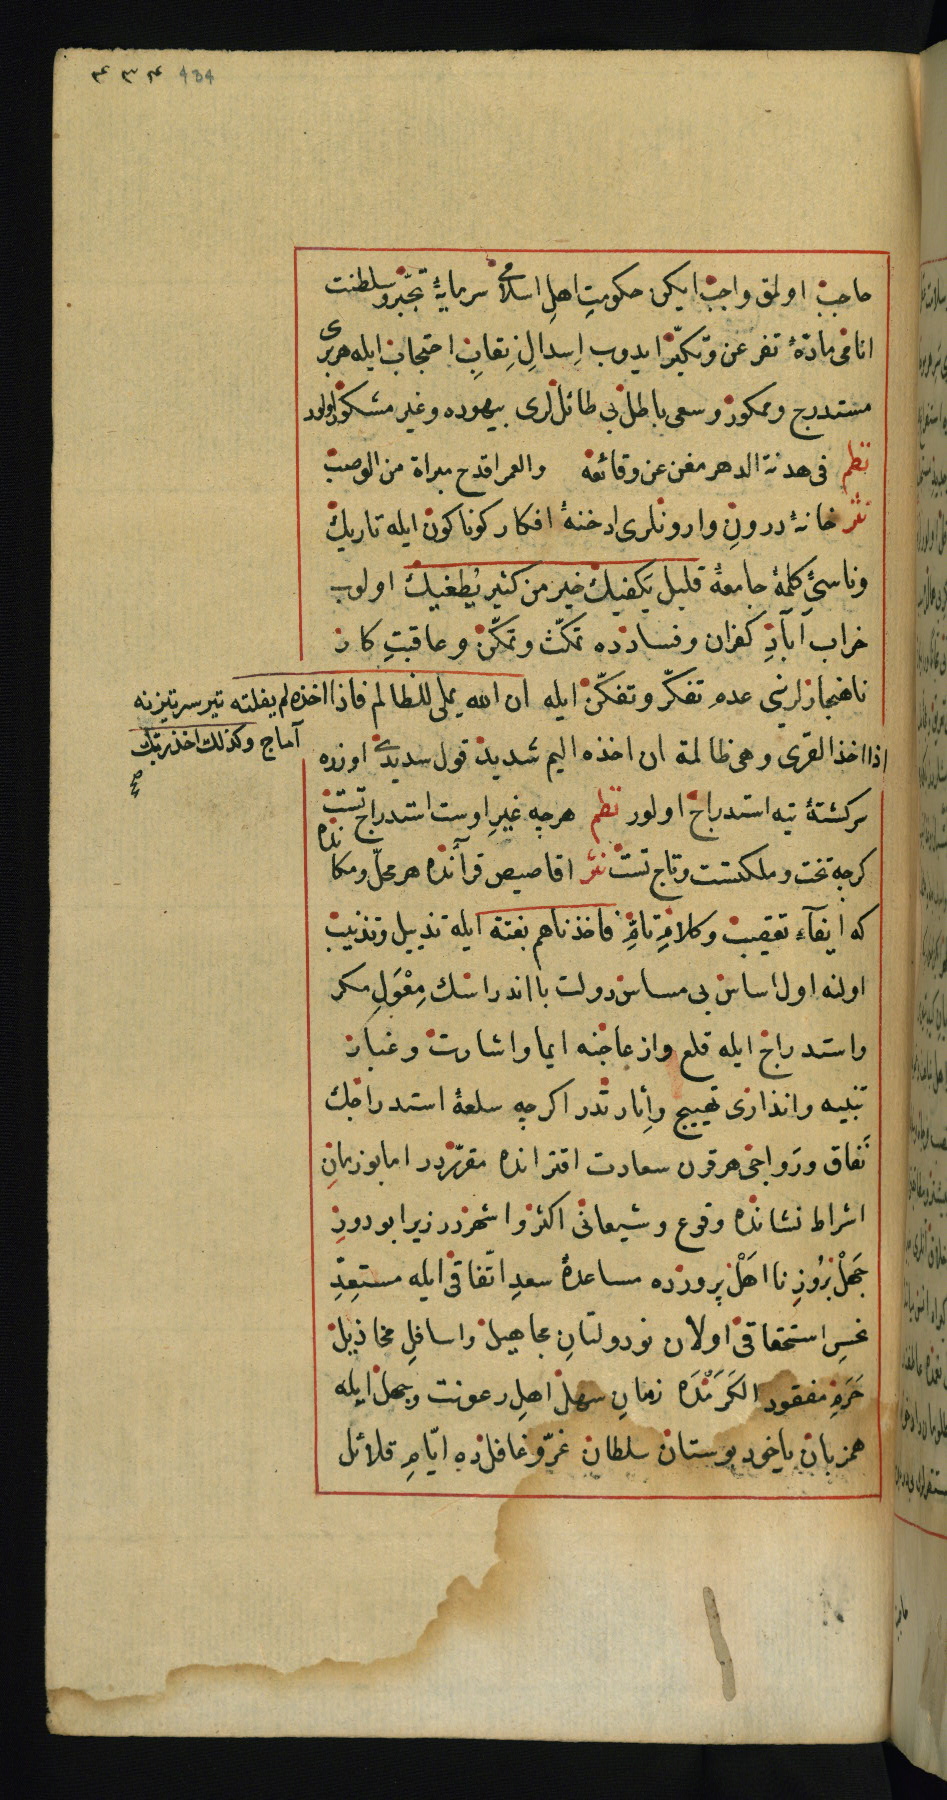 ۴۳۴ 434
حاجب اولمق واجب ایکن حکومتِ اهلِ اسلامی سرمایۀ تجبّر و سلطنت
انامی مادّۀ تفرعن و تکبّر ایدوب اِسدالِ نِقابِ احتجاب ایله هر بری
مستدرج و ممکور و سعی باطل بی طائللری بیهوده و غیر مشکور اولور
نظم فی هدنة الدهر مغن عن وقائعه والعمر اقدح مبراة من الوصب
نثر خانۀ درونِ وارونلری ادخنۀ افکار کوناکون ایله تاریک
وناسئ کلمۀ جامعۀ قلیل یَکفیك خیر من کثیر یُطغیك اولوب
خراب آبادِ کفران و فسادده تمکّث و تمکّن و عاقبتِ کار
ناهنجارلرینی عدمِ تفکّر و تفکّن ایله ان الله یملی للظالم فاذا اخذه لم یفلته تیر سرتیزنه
آماج وکذلك اخذ ربّك
اذا اخذ القری و هی ظالمة ان اخذه الیم شدید قول سدیدی اوزره
سرکشتۀ تیه استدراج اولور نظم هرچه غیرِ اوست استدراج تست
کرچه تخت و ملکتست و تاج تست نثر اقاصیص قرآنده هر محلّ و مکانده
که ایفآء تعقیب و کلامِ تامِّ فاخذناهم بغتة ایله تذییل و تذنیب
اولنه اول اساس بی مساس دولت با اندراسك مِعْوَلِ مکر
و استدراج ایله قلع و ازعاجنه ایما و اشارت و عباد
تنبیه و انذاری تهییج و اِثارتدر اکرچه سلعۀ استدراجك
نَفاق و رَواجی هر قرن سعادت اقترانده مقرّردر اما بو زمانِ
اشراط نشانده وقوع و شیعانی اکثر و اشهردر زیرا بو دورِ
جَهلْ بُروزِ نااَهلْ پرورده مساعدۀ سعدِ اتّفاقی ایله مستعِدِّ
نحسِ استحقاقی اولان نودولتانِ مجاهیل و اسافلِ مخاذیل
حَرَمِ مفقود الکَرَمْدَه زمانِ سهل اهلِ رعونت و جهل ایله
همزبان یاخود بوستان سلطان غرّ و غافلده ایّامِ قلائل